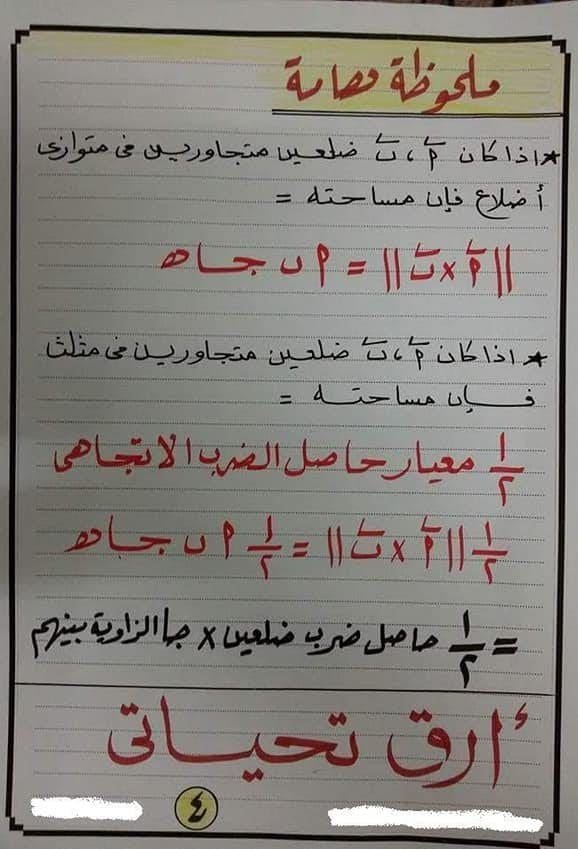 ملحوظة هامة
* اذا كان أ، ب ضلعين متجاورين فى متوازى
أضلاع فإن مساحته =
||أ × ب|| = أ ب جا هـ
* اذا كان أ، ب ضلعين متجاورين فى مثلث
فإن مساحته =
١/٢ معيار حاصل الضرب الاتجاهى
١/٢ ||أ × ب|| = ١/٢ أ ب جا هـ
= ١/٢ حاصل ضرب ضلعين × جا الزاوية بينهم
أرق تحياتى
٤